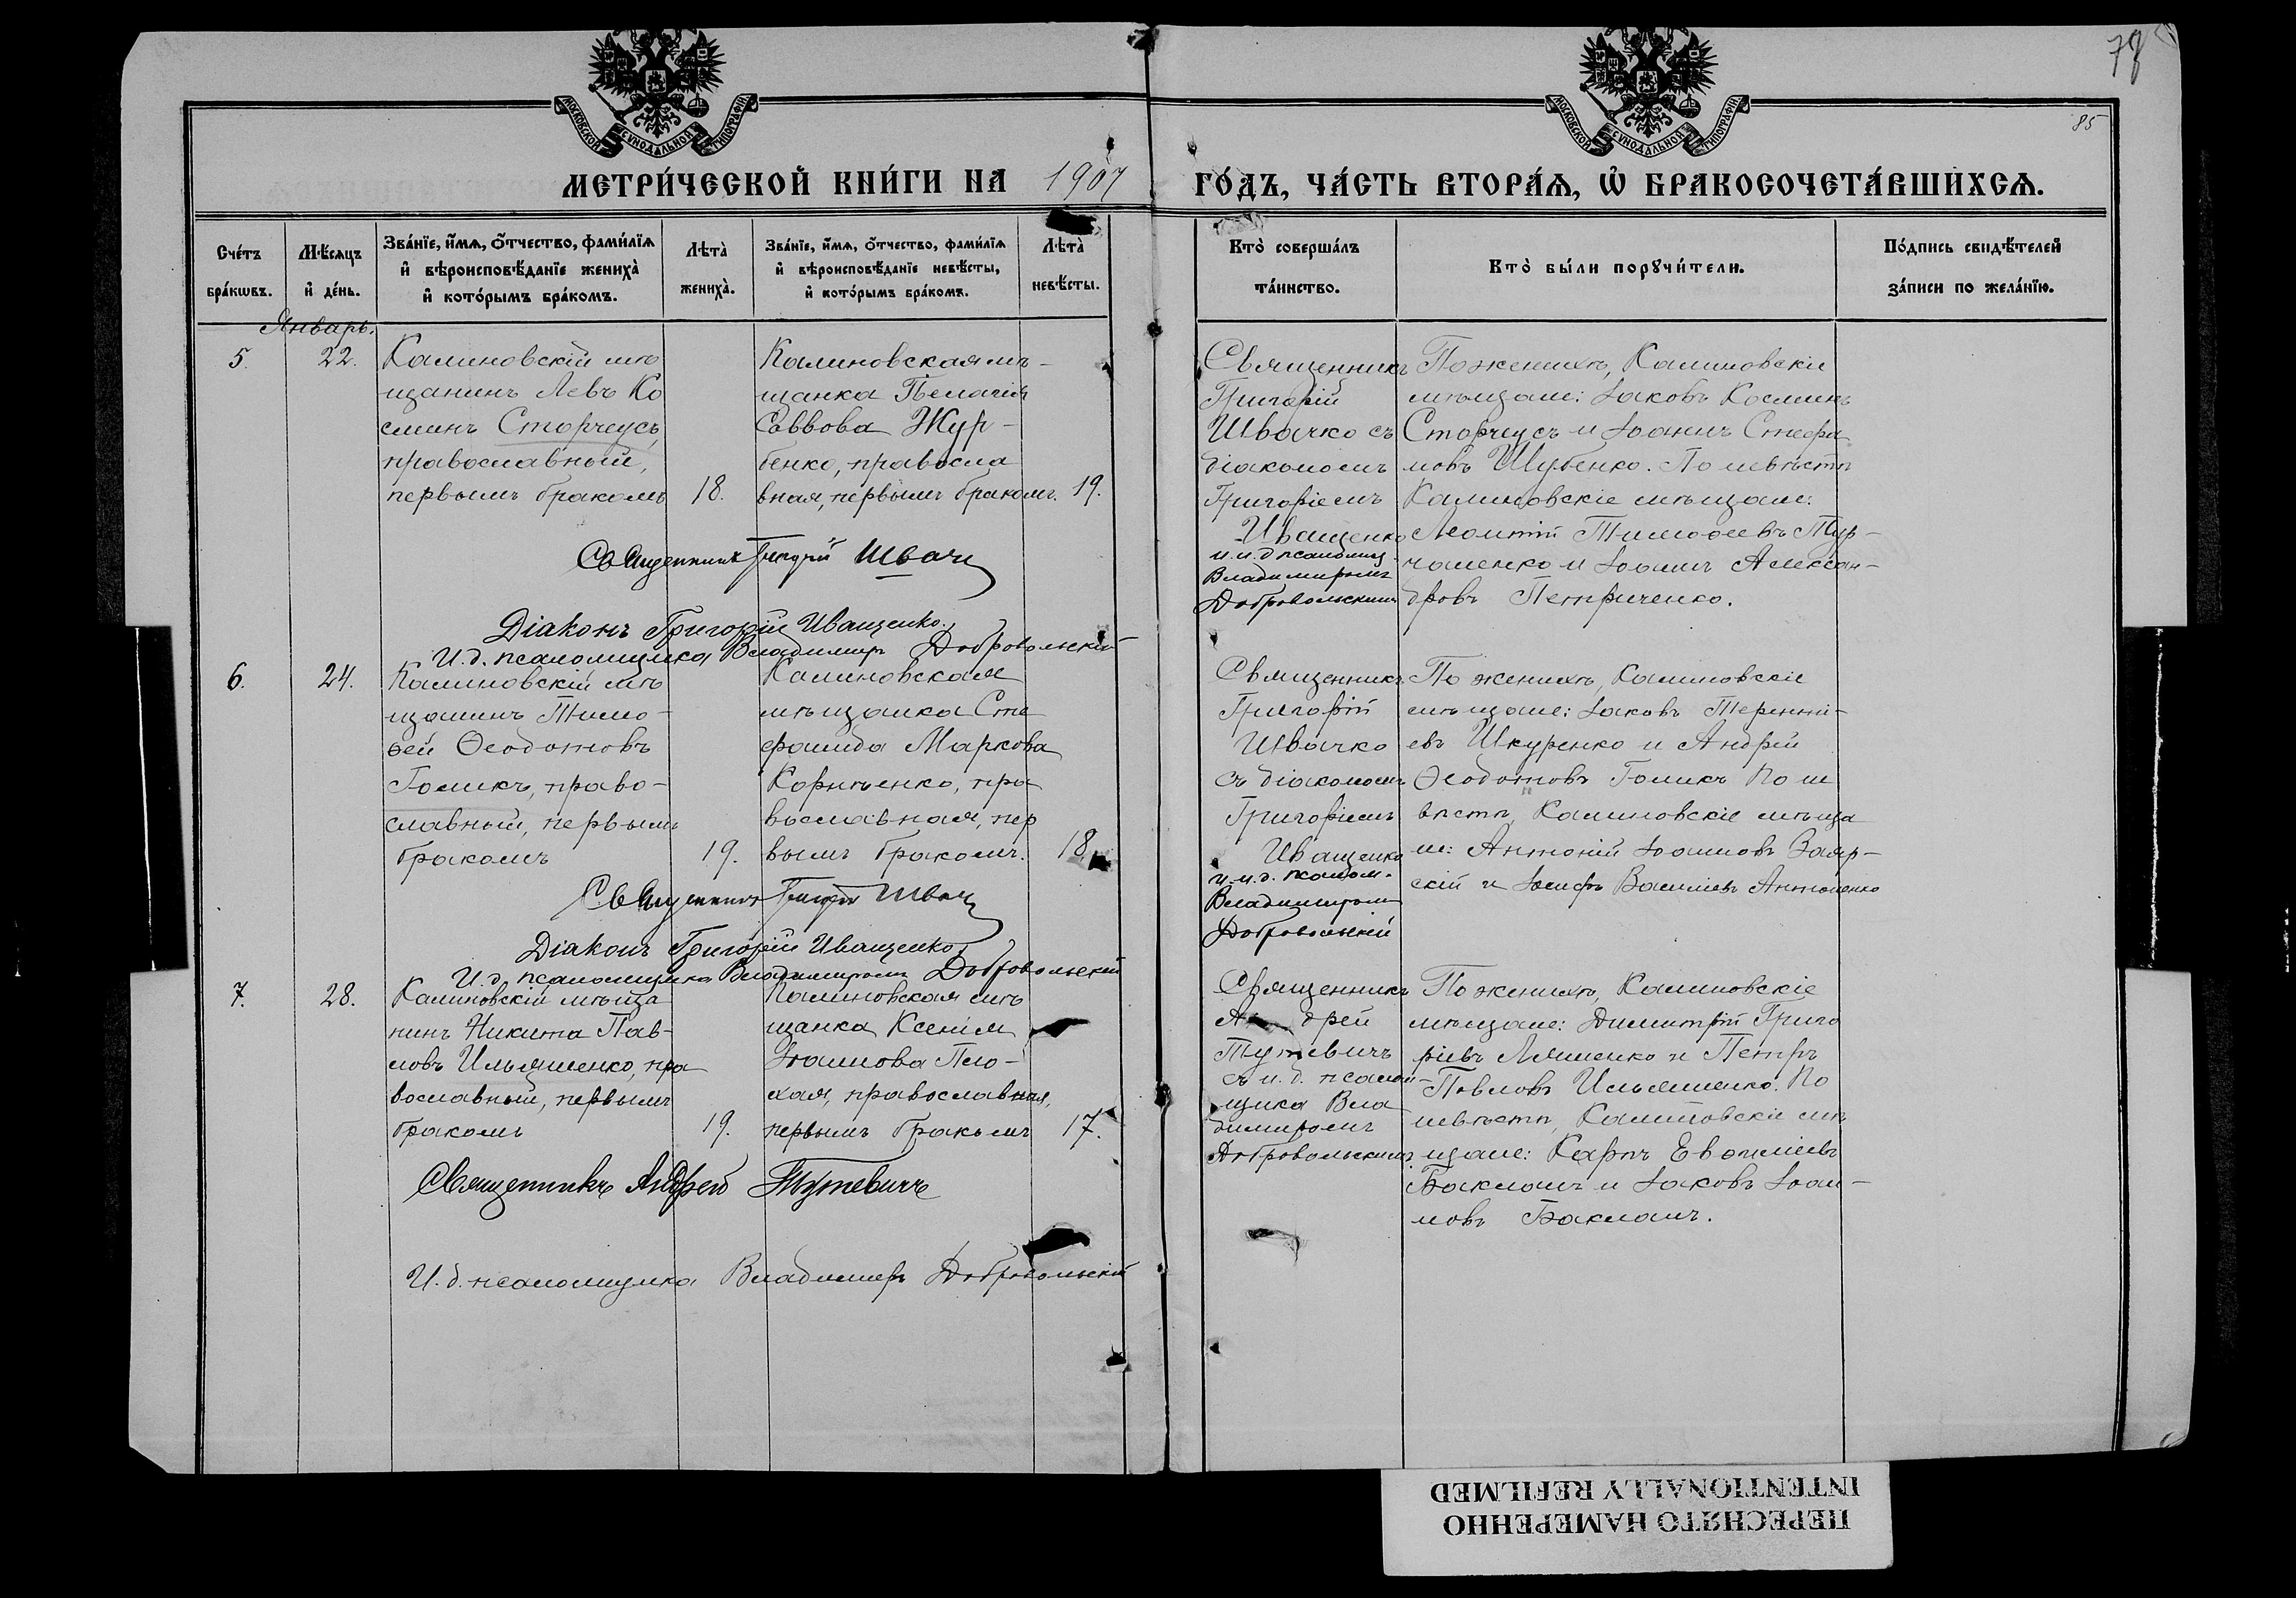 78
85
МОСКОВСКОЙ СѴНОДАЛЬНОЙ ТИПОГРАФІИ
МОСКОВСКОЙ СѴНОДАЛЬНОЙ ТИПОГРАФІИ
МЕТРИ́ЧЕСКОЙ КНИ́ГИ НА 1907 ГО́ДЪ, ЧА́СТЬ ВТОРА́Ѧ, Ѡ҆ БРАКОСОЧЕТА́ВШИХСѦ.
Сче́тъ
бра́кѡвъ.
Мѣ́сѧцъ
и҆ де́нь.
Зва́нїе, и҆́мѧ, ѻ҆́тчество, фами́лїѧ
и҆ вѣроисповѣ́данїе жениха̀
и҆ кото́рымъ бра́комъ.
Лѣта̀
жениха̀.
Зва́нїе, и҆́мѧ, ѻ҆́тчество, фами́лїѧ
и҆ вѣроисповѣ́данїе невѣ́сты,
и҆ кото́рымъ бра́комъ.
Лѣта̀
невѣ́сты.
Кто̀ соверша́лъ
та́инство.
Кто̀ бы́ли порꙋчи́тели.
По́дпись свидѣ́телей
за́писи по жела́нїю.
Январь.
5.
22.
Калиновскій мѣ
щанинъ Левъ Ко
сминъ Сторчеусъ,
православный,
первымъ бракомъ
18.
Калиновская мѣ-
щанка Пелагія
Саввова Жур-
бенко, правосла
вная, первымъ бракомъ.
19.
Священникъ
Григорій
Швачко съ
діакономъ
Григоріемъ
Иващенко
и и.д псаломщ.
Владимиромъ
Добровольскимъ
По женихѣ, Калиновскіе
мѣщане: Іаковъ Косминъ
Сторчеусъ и Іоаннъ Стефа
новъ Шубенко. По невѣстѣ
Калиновскіе мѣщане:
Леонтій Тимоѳеевъ Тур-
чаненко и Іоаннъ Алексан-
дровъ Петриченко.
Священникъ Григорій Швачко
Діаконъ Григорій Иващенко.
И.д. псаломщика Владимир Добровольскій
6.
24.
Калиновскій мѣ
щанинъ Тимо-
ѳей Ѳеодотовъ
Голикъ, право-
славный, первымъ
бракомъ
19.
Калиновская
мѣщанка Сте
фанида Маркова
Корнѣенко, пра
вославная, пер
вымъ бракомъ.
18.
Священникъ
Григорій
Швачко
съ діакономъ
Григоріемъ
Иващенко
и и.д. псалом.
Владимиром
Добровольскій
По женихѣ, Калиновскіе
мѣщане: Іаковъ Теренті-
евъ Шкуренко и Андрей
Ѳеодотовъ Голикъ По не
вѣстѣ, Калиновскіе мѣща
не: Антоній Іоанновъ Заяр-
скій и Іосифъ Василіевъ Антоненко
Священникъ Григорій Швачко
Діаконъ Григорій Иващенко
И.д. псаломщика Владимиром Добровольскій
7.
28.
Калиновскій мѣща
нинъ Никита Пав-
ловъ Ильяшенко, пра
вославный, первымъ
бракомъ
19.
Калиновская мѣ
щанка Ксенія
Іоаннова Пло-
хая, православная,
первымъ бракомъ
17.
Священникъ
Андрей
Тутевичъ
съ и.д. псалом-
щика Вла
димиромъ
Добровольскимъ
По женихѣ, Калиновскіе
мѣщане: Димитрій Григо
ріевъ Ляшенко и Петръ
Павловъ Ильяшенко. По
невѣстѣ, Калиновскіе мѣ
щане: Карпъ Евѳиміевъ
Бакланъ и Іаковъ Іоан-
новъ Бакланъ.
Священникъ Андрей Тутевичъ
И.д. псаломщика Владимиръ Добровольскій
ПЕРЕСНЯТО НАМЕРЕННО
INTENTIONALLY REFILMED